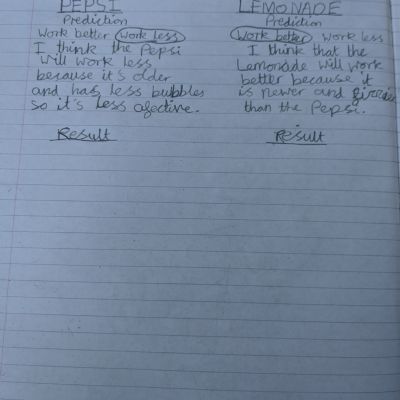 PEPSI
Prediction
Work better work less
I think the Pepsi
will work less
because it's older
and has less bubbles
so it's less afective.
Result
LEMONADE
Prediction
Work better work less
I think that the
Lemonade will work
better because it
is newer and
than the Pepsi.
Result